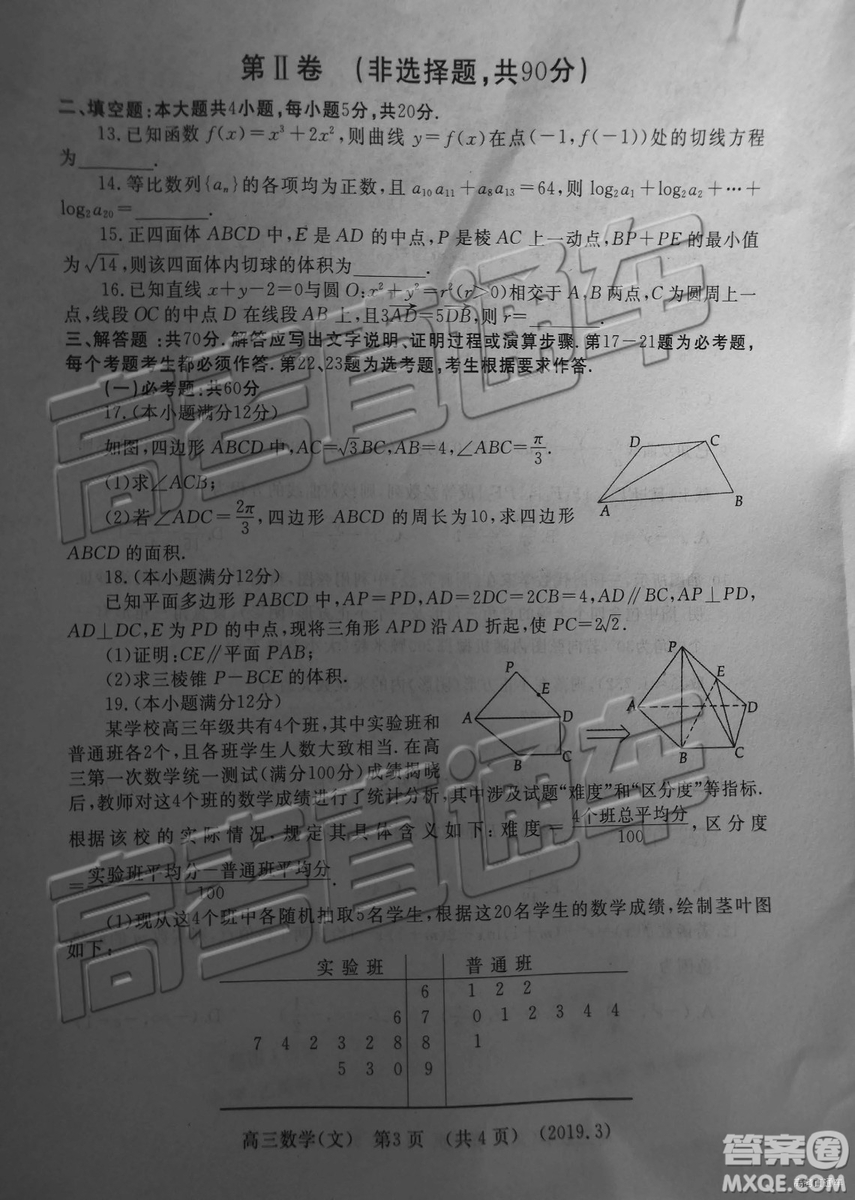 第Ⅱ卷 (非选择题,共90分)
二、填空题:本大题共4小题,每小题5分,共20分.
13.已知函数 f(x)=x³+2x²,则曲线 y=f(x)在点(-1,f(-1))处的切线方程
为______.
14.等比数列{aₙ}的各项均为正数,且 a₁₀a₁₁+a₈a₁₃=64,则 log₂a₁+log₂a₂+…+
log₂a₂₀=______.
15.正四面体 ABCD 中,E 是 AD 的中点,P 是棱 AC 上一动点,BP+PE 的最小值
为√14,则该四面体内切球的体积为______.
16.已知直线 x+y-2=0与圆 O:x²+y²=r²(r>0)相交于 A,B 两点,C 为圆周上一
点,线段 OC 的中点 D 在线段 AB 上,且3AD→=5DB→,则 r=______.
三、解答题:共70分.解答应写出文字说明、证明过程或演算步骤.第17-21题为必考题,
每个考题考生都必须作答.第22、23题为选考题,考生根据要求作答.
(一)必考题:共60分
17.(本小题满分12分)
如图,四边形 ABCD 中,AC=√3BC,AB=4,∠ABC=π/3.
(1)求∠ACB;
(2)若∠ADC=2π/3,四边形 ABCD 的周长为10,求四边形
ABCD 的面积.
D C
A B
18.(本小题满分12分)
已知平面多边形 PABCD 中,AP=PD,AD=2DC=2CB=4,AD∥BC,AP⊥PD,
AD⊥DC,E 为 PD 的中点,现将三角形 APD 沿 AD 折起,使 PC=2√2.
(1)证明:CE∥平面 PAB;
(2)求三棱锥 P-BCE 的体积.
P E A D B C
P E A D B C
19.(本小题满分12分)
某学校高三年级共有4个班,其中实验班和
普通班各2个,且各班学生人数大致相当.在高
三第一次数学统一测试(满分100分)成绩揭晓
后,教师对这4个班的数学成绩进行了统计分析,其中涉及试题“难度”和“区分度”等指标.
根据该校的实际情况,规定其具体含义如下:难度=4个班总平均分/100,区分度
=实验班平均分-普通班平均分/100.
(1)现从这4个班中各随机抽取5名学生,根据这20名学生的数学成绩,绘制茎叶图
如下:
实验班 普通班
6 1 2 2
6 7 0 1 2 3 4 4
7 4 2 3 2 8 8 1
5 3 0 9
高三数学(文) 第3页 (共4页) (2019.3)
高考直通车
高考直通车
答案圈
MXQE.COM